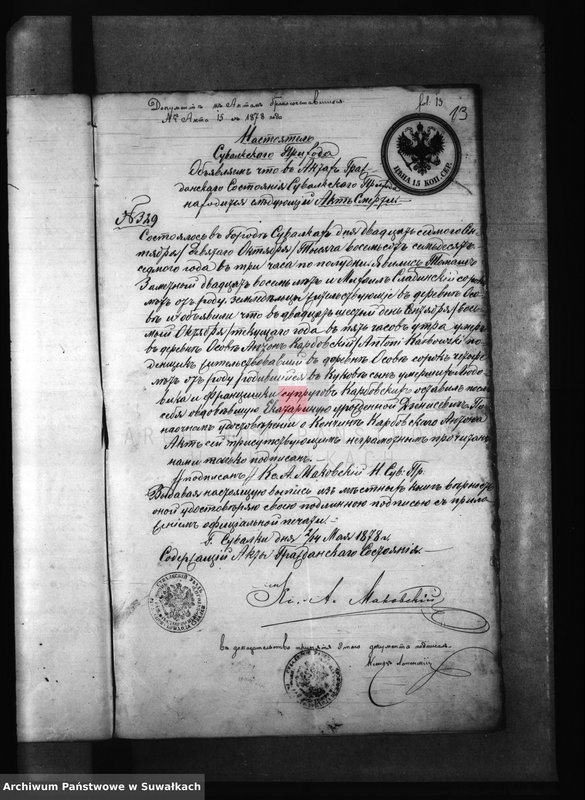 Документъ къ Актамъ бракосочетавшихся
№ Акта 15 в 1878 года
fol. 13
13
ЦѢНА 15 КОП. СЕР.
Настоятель
Сувалкскаго Прихода
Объявляетъ что въ Актахъ Граж
данскаго Состоянія Сувалкскаго Прихода
находится слѣдующій Актъ Смерти.
№ 349
Состоялось въ Городѣ Сувалкахъ дня двадцать седьмаго Сен
тября /девятаго Октября/ Тысяча восемьсотъ семьдесятъ
седмаго года въ три часа по полудни. Явились Томашъ
двадцать восемь лѣтъ и Михаилъ Сладинскій сорокъ
лѣтъ отъ роду, земледѣльцы жительствующіе въ деревнѣ Осо
вѣ и объявили что въ двадцать шестый день Сентября /вось
мый Октября/ текущаго года въ пять часовъ утра умеръ
въ деревнѣ Осовѣ Антонъ Карбовскій /Antoni Karbowski/ по
денщикъ жительствовавшій въ деревнѣ Осовѣ сорокъ четыре
лѣтъ отъ роду родившійся въ Куковѣ сынъ умершихъ Людо
вика и Францишки супруговъ Карбовскихъ оставилъ послѣ
себя овдовѣвшую Екатерину урожденной Денисевичъ. По
наочномъ удостовѣреніи о Кончинѣ Карбовскаго Антона
Актъ сей присутствующимъ неграмотнымъ прочитанъ
нами только подписанъ.
/подписалъ/ Кс. А. Маковскій Н. Сув. Пр.
Выдавая настоящую выпись изъ мѣстныхъ книгъ вѣрность
оной удостовѣряю своею подлинною подписью съ прило
женіемъ официальной печати.
Г. Сувалки дня 2/14 Мая 1878 г.
Содержащій Акты Гражданскаго Состоянія
Кс. А. Маковскій
въ доказательство принятія этого документа подписался
Archiwum Państwowe w Suwałkach